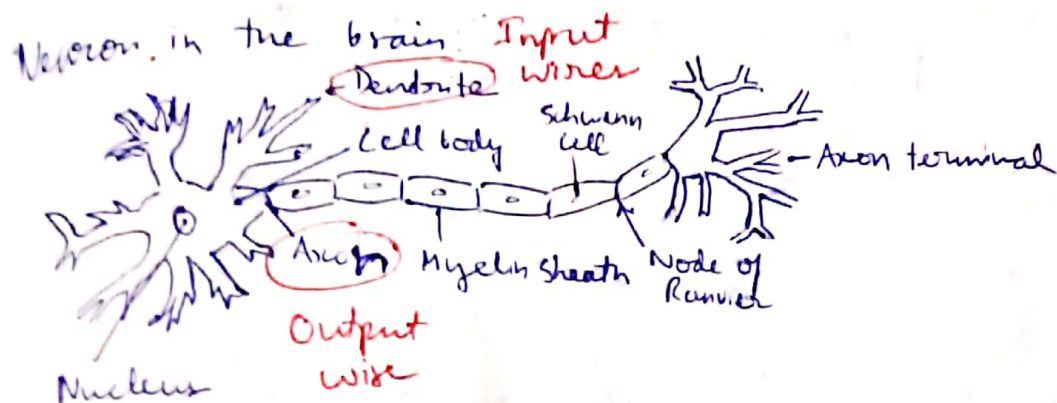 Neuron in the brain
Input
wires
Dendrite
Cell body
Schwann
Cell
Axon terminal
Axon
Myelin Sheath
Node of
Ranvier
Output
wire
Nucleus